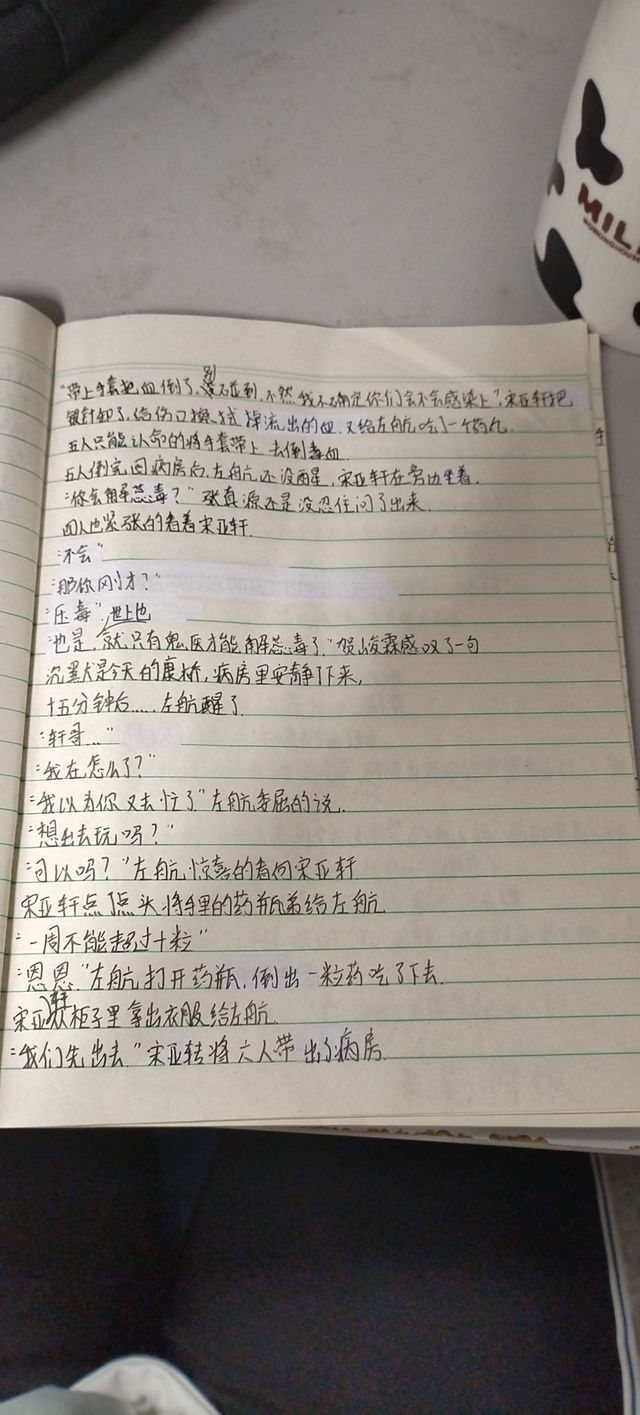 MIL
"带上手套把血倒了,别碰到,不然我不确定你们会不会感染上",宋亚轩把
银针卸了,给伤口擦拭掉流出的血,又给左航吃了一个药丸
五人只能认命的将手套带上去倒毒血
五人倒完回病房后,左航还没醒,宋亚轩在旁边坐着.
"你会解蕊毒?"张真源还是没忍住问了出来
四人也紧张的看着宋亚轩.
"不会"
"那你刚才?"
"压毒"
"也是,世上也就只有鬼医才能解蕊毒了."贺峻霖感叹了一句
沉默是今天的康桥,病房里安静下来,
十五分钟后....左航醒了.
"轩哥..."
"我在怎么了?"
"我以为你又去忙了"左航委屈的说.
"想出去玩吗?"
"可以吗?"左航惊喜的看向宋亚轩
宋亚轩点了点头将手里的药瓶递给左航
"一周不能超过十粒"
"恩恩."左航打开药瓶,倒出一粒药吃了下去.
宋亚轩从柜子里拿出衣服给左航.
"我们先出去."宋亚转将六人带出了病房.